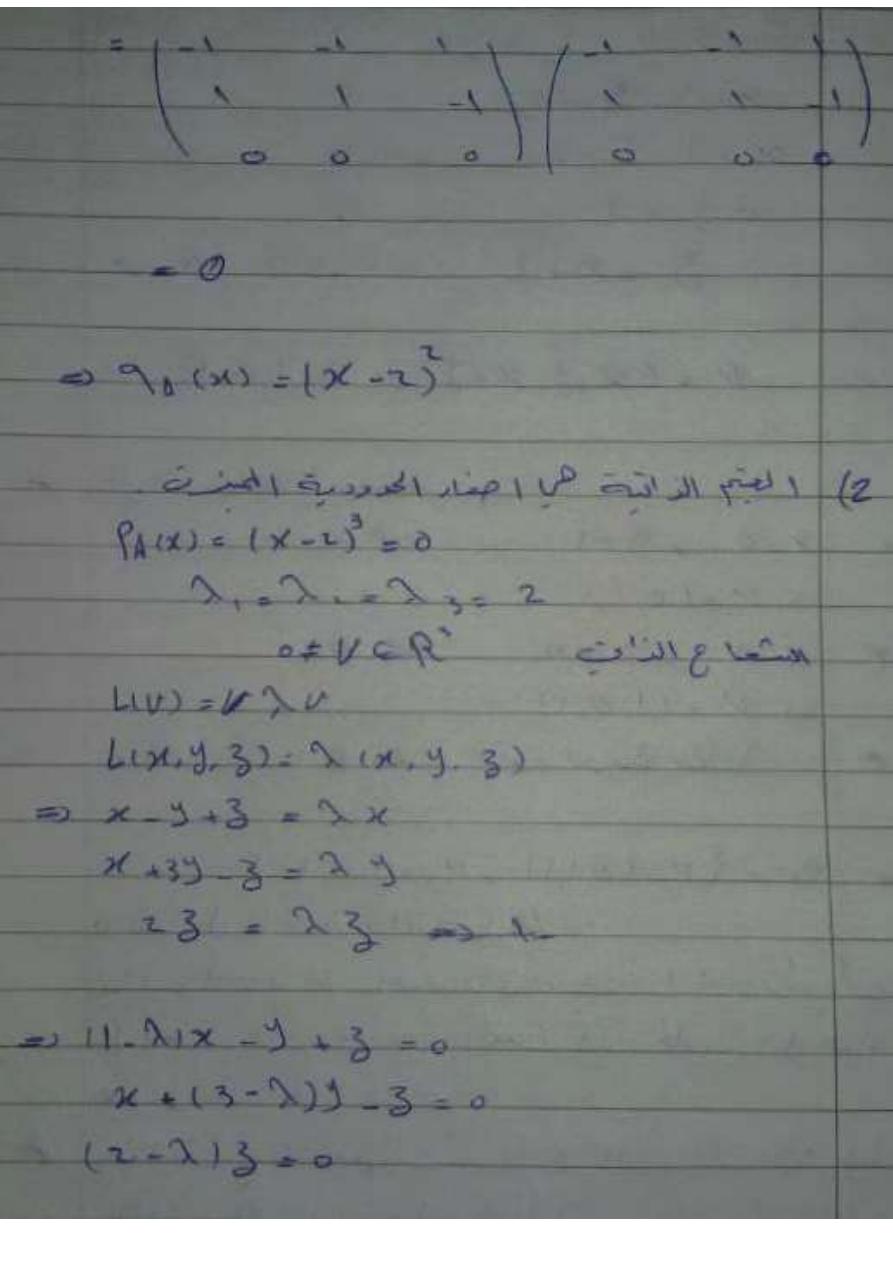 = ( -1 -1 1 ) ( -1 -1 1 )
( 1 1 -1 ) ( 1 1 -1 )
( 0 0 0 ) ( 0 0 0 )
= 0
⇒ q_A(x) = (x - 2)²
2) القيم الذاتية هي اصفار الحدودية المميزة .
P_A(x) = (x - 2)³ = 0
λ₁ = λ₂ = λ₃ = 2
الشعاع الذاتي 0 ≠ V ∈ R³
L(v) = λ v
L(x, y, z) = λ (x, y, z)
⇒ x - y + z = λ x
x + 3y - z = λ y
2z = λ z ⇒
⇒ (1 - λ)x - y + z = 0
x + (3 - λ)y - z = 0
(2 - λ)z = 0